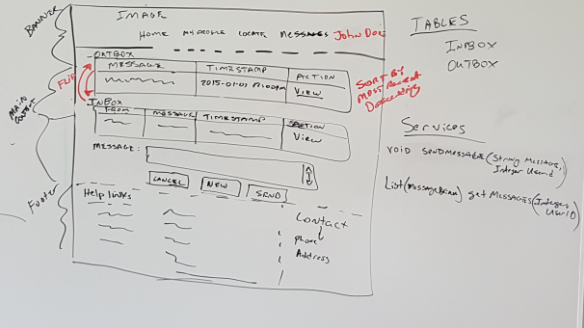 BANNER
IMAGE
HOME MY PROFILE LOCATE MESSAGES John Doe
OUTBOX
MESSAGE TIMESTAMP ACTION
VIEW
FLIP
SORT BY
MOST RECENT
Descending
MAIN
CONTENT
INBOX
FROM MESSAGE TIMESTAMP
VIEW
MESSAGE:
CANCEL NEW SEND
Footer
Help links
CONTACT
Phone
Address
TABLES
INBOX
OUTBOX
Services
void SENDMESSAGE(String Message,
Integer Userid)
List(MessageBean) getMESSAGES(Integer
USERID)